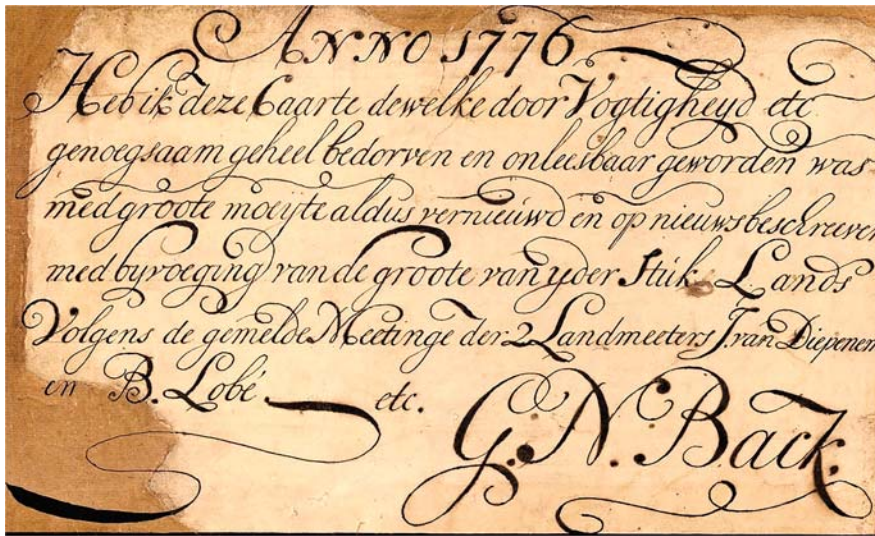 ANNO 1776
Heb ik deze Caarte dewelke door Vogtigheyd etc
genoegsaam geheel bedorven en onleesbaar geworden was
med groote moeyte aldus vernieuwd en op nieuws beschreeven
med byvoeging van de groote van yder Stuk Lands
Volgens de gemelde Meetinge der 2 Landmeeters J. van Diepenem
en B. Lobé etc.
G. N. Back.